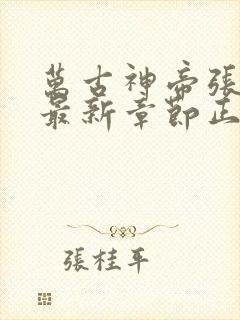 萬古神帝張
最新章節正
張桂平